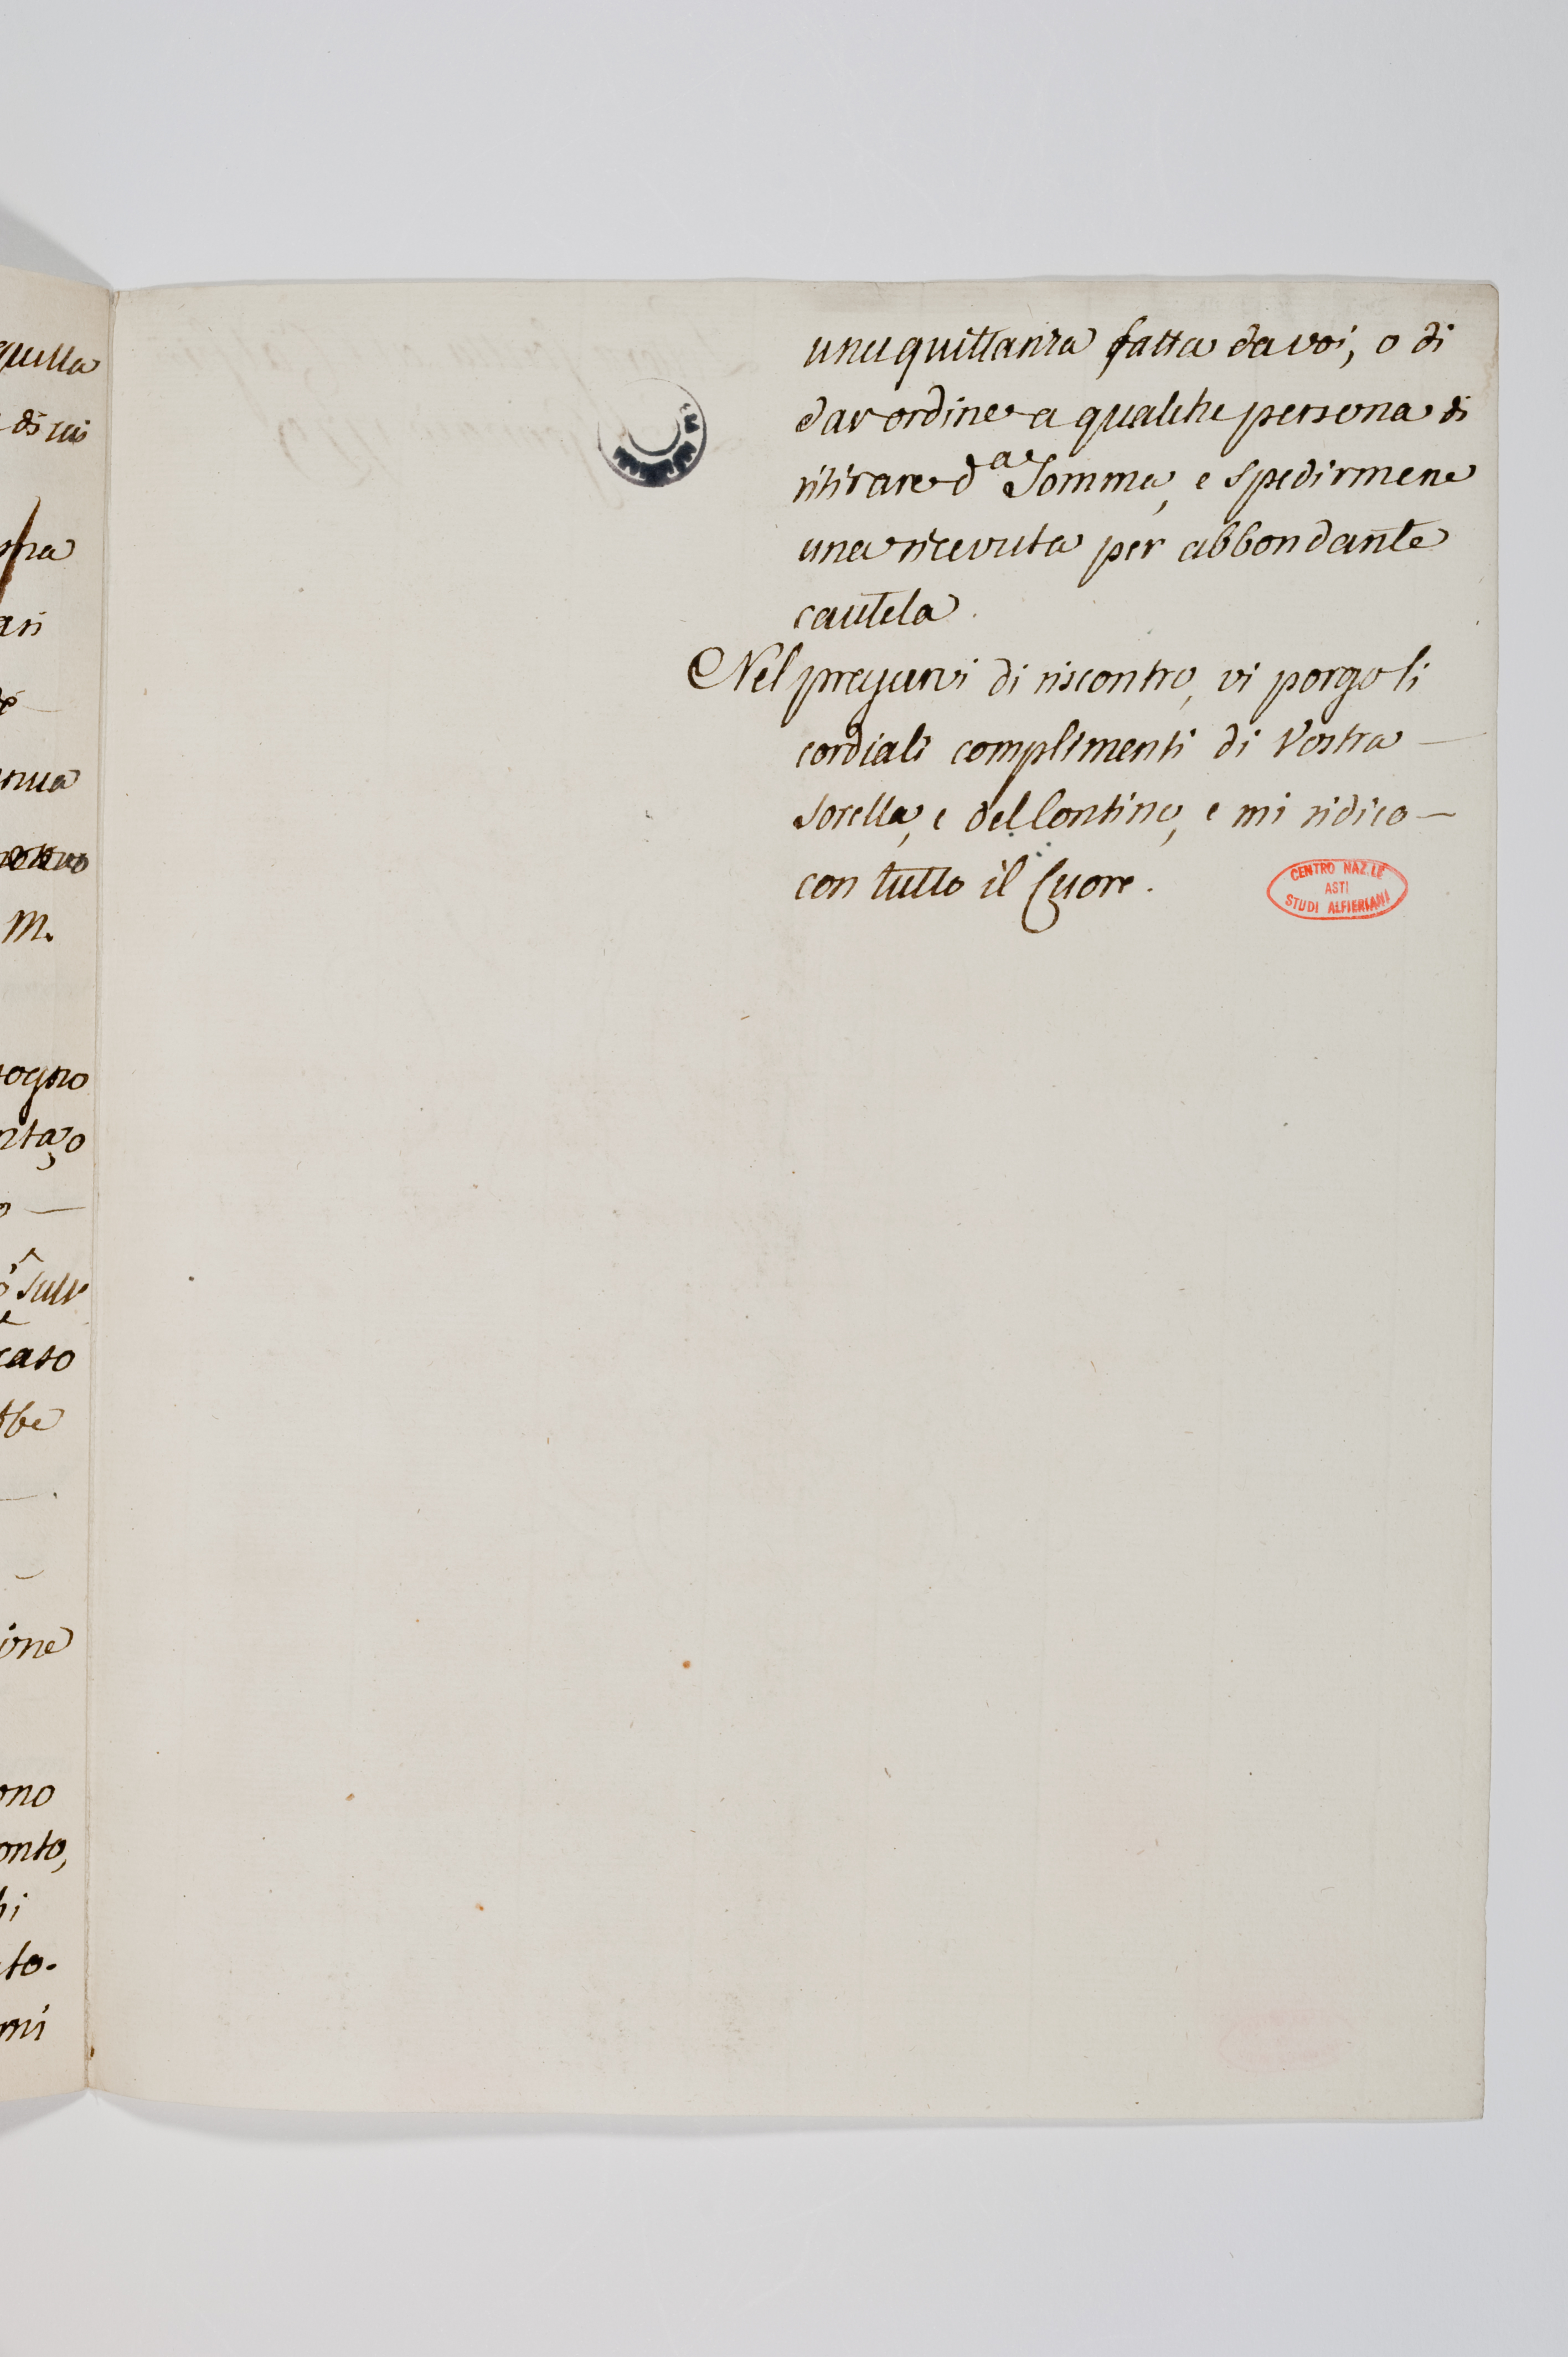 una quittanza fatta da voi, o di
dar ordine a qualche persona di
ritirare d.a Somma, e spedirmene
una ricevuta per abbondante
cautela.
Nel pregarvi di riscontro, vi porgo li
cordiali complimenti di Vostra —
Sorella, e del Contino, e mi ridico —
con tutto il Cuore.
CENTRO NAZ.LE
ASTI
STUDI ALFIERIANI
quella
di cui
ogno
caso